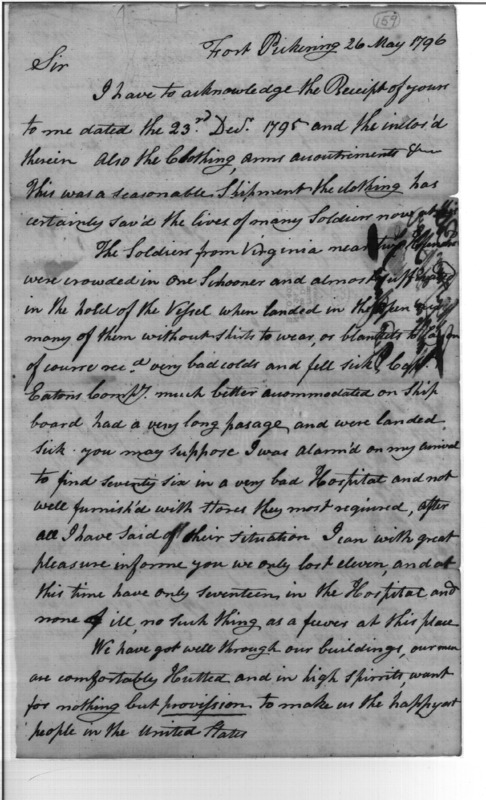 159
Fort Pickering 26 May 1796
Sir
I have to acknowledge the Receipt of yours
to me dated the 23.rd Decr. 1795 and the inclos'd
therein also the Clothing, arms accoutriments &c
This was a seasonable Shipment the clothing has
certainly sav'd the lives of many Soldiers now
The Soldiers from Virginia near
were crowded in one Schooner and almost
in the hold of the Vessel when landed in the open
many of them without shirts to wear, or blankets to lay on
of course rec.d very bad colds and fell sick, Capt.
Eatons Compy. much better acommodated on Ship
board had a very long pasage, and were landed
sick - you may suppose I was alarm'd on my arrival
to find seventy six in a very bad Hospital and not
well furnish'd with stores they most required, after
all I have said of their situation I can with great
pleasure informe you we only lost eleven, and at
this time have only seventeen, in the Hospital and
none ill, no such thing, as a feever at this place
We have got well through our buildings, our men
are comfortably Hutted and in high spirrits, want
for nothing but provission to make us the happyest
people in the United States